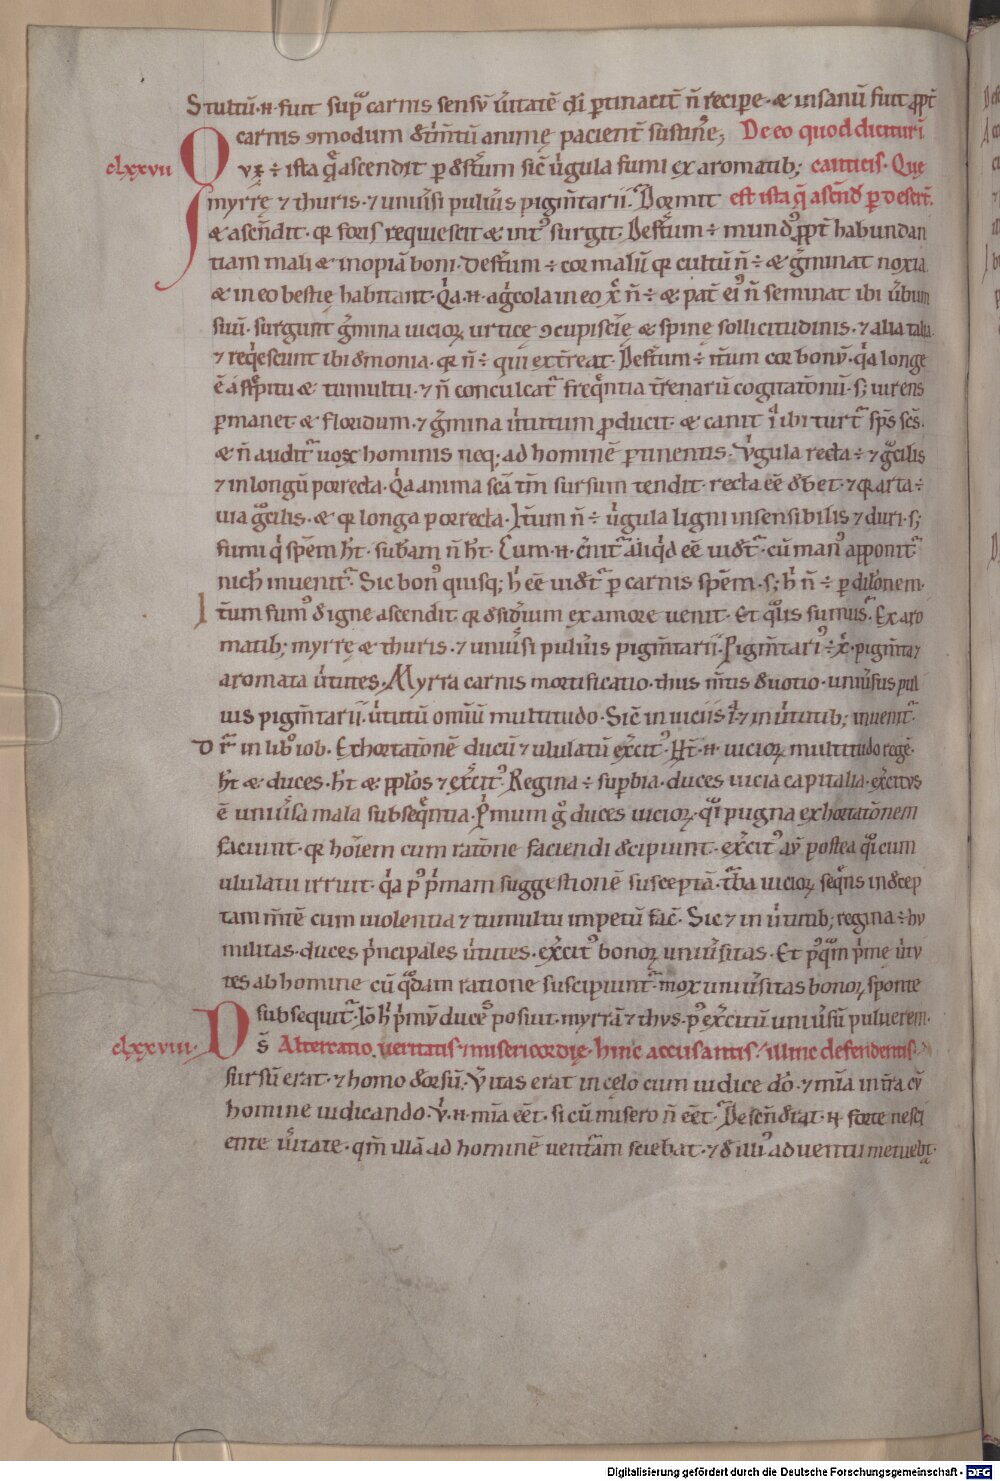 Stultū·n·fuit sup carnis sensū ūitatē di ꝑtinacit̄ n̄ recipe·& insanū fuit ꝓpt̄
carnis ꝯmodum detim̄tū animę pacient̄ sustine; De eo quod dicitur ī
clxxvii Que ÷ ista q̄ ascendit ꝑ desertum sic ūgula fumi ex aromatib; canticis. Que
myrrę ⁊ thuris·⁊ uniūsi puluis pigm̄tarii. Dormit est ista q̄ ascend ꝑ desert̄.
& ascendit· qꝛ foris requiescit & int᷒ surgit· Desertum ÷ mund᷒ ꝓpt̄ habundan
tiam mali & inopiā boni· desertum ÷ cor malū qꝛ cultū n̄ ÷ & gminat noxia
& in eo bestię habitant· Qa·n·agcola in eo xp̄c n̄ ÷ & pat̄ ei᷒ n̄ seminat ibi ūbum
suū· surgunt gmina uicioꝝ urticę ꝯcupiscīę & spinę sollicitudinis·⁊ alia talia·
⁊ reqescunt ibi demonia· qꝛ n̄ ÷ qui extreat· Desertum ÷ it̄um cor bonū·qa longe
ē a strepitu & tumultu·⁊ n̄ conculcat᷑ freqntia t̄renarū cogitatōnū·s; uirens
ꝑmanet & floridum·⁊ gmina uirtutum ꝓducit· & canit ibi turt᷑ sp̄s sc̄s·
& n̄ audit᷑ uox hominis neq; ad hominē ꝑtinentis· Vgula recta ÷ ⁊ gcilis
⁊ in longū porrecta· Qa anima scā tm̄ sursum tendit· recta eē debet·⁊ qꝛ arta ÷
uia gcilis· & qꝛ longa porrecta· It̄um n̄ ÷ ūgula ligni insensibilis ⁊ duri·s;
fumi q spēm ht̄· subām n̄ ht̄· Cum·n·cnit᷑ aliqd eē uidet᷑·cū man᷒ apponit᷑
nich inuenit᷑· Sic bon᷒ quisq; h eē uidet᷑ ꝑ carnis spēm·s; h n̄ ÷ ꝑ dilōnem·
It̄um fum᷒ de igne ascendit· qꝛ desidium ex amore uenit· Et qlis fumus᷑· Ex aro
matib; myrrę & thuris·⁊ uniūsi puluis pigm̄tarii· Pigm̄tari᷒ ÷ xp̄c· pigm̄ta⁊
aromata ūtutes· Myrra carnis mortificatio· thus m̄tis deuotio· uniūsus pul
uis pigm̄tarii· ūtutū omiū multitudo· Sic in uiciis ⁊ in ūtutib; inuenit᷑·
Dr in libo iob· Exhortatōnē ducū ⁊ ululatū excit᷒· Ht̄·n·uicioꝝ multitudo regē·
ht̄ & duces· ht̄ & ppłos ⁊ excit᷒· Regina ÷ supbia· duces uicia capitalia· excitus
ē uniūsa mala subseqntia· Pmum g duces uicioꝝ· qi pugna exhortatōnem
faciunt· qꝛ hoīem cum ratōne faciendi decipiunt· excit᷒ aū postea qi cum
ululatu irruit· qa p᷒ pmam suggestionē susceptā· tba uicioꝝ seqns in decep
tam m̄tē cum uiolentia ⁊ tumultu impetū fac̄· Sic ⁊ in ūtutib; regina ÷ hu
militas· duces pncipales ūtutes· excit᷒ bonoꝝ uniūsitas· Et p᷒qm pmę ūtu
tes ab homine cū qdam ratione suscipiunt᷑· mox uniūsitas bonoꝝ sponte
subsequit᷑· Iō h pmū duces posuit· myrrā ⁊ thus· p᷒ excitū uniūsū puluerem·
clxxviii· Ds̄ Altercatio ueritatis ⁊ misericordię· hinc accusantis· illinc defendentis·
sursū erat·⁊ homo deorsū· Vitas erat in celo cum iudice do·⁊ mīa in t̄ra cū
homine iudicando· V·n·mīa eēt· si cū misero n̄ eēt· Descenderat·n·forte nesci
ente ūitate· qm̄ illā ad hominē uentam sciebat·⁊ de illi᷒ aduentu metuebat·
Digitalisierung gefördert durch die Deutsche Forschungsgemeinschaft - DFG